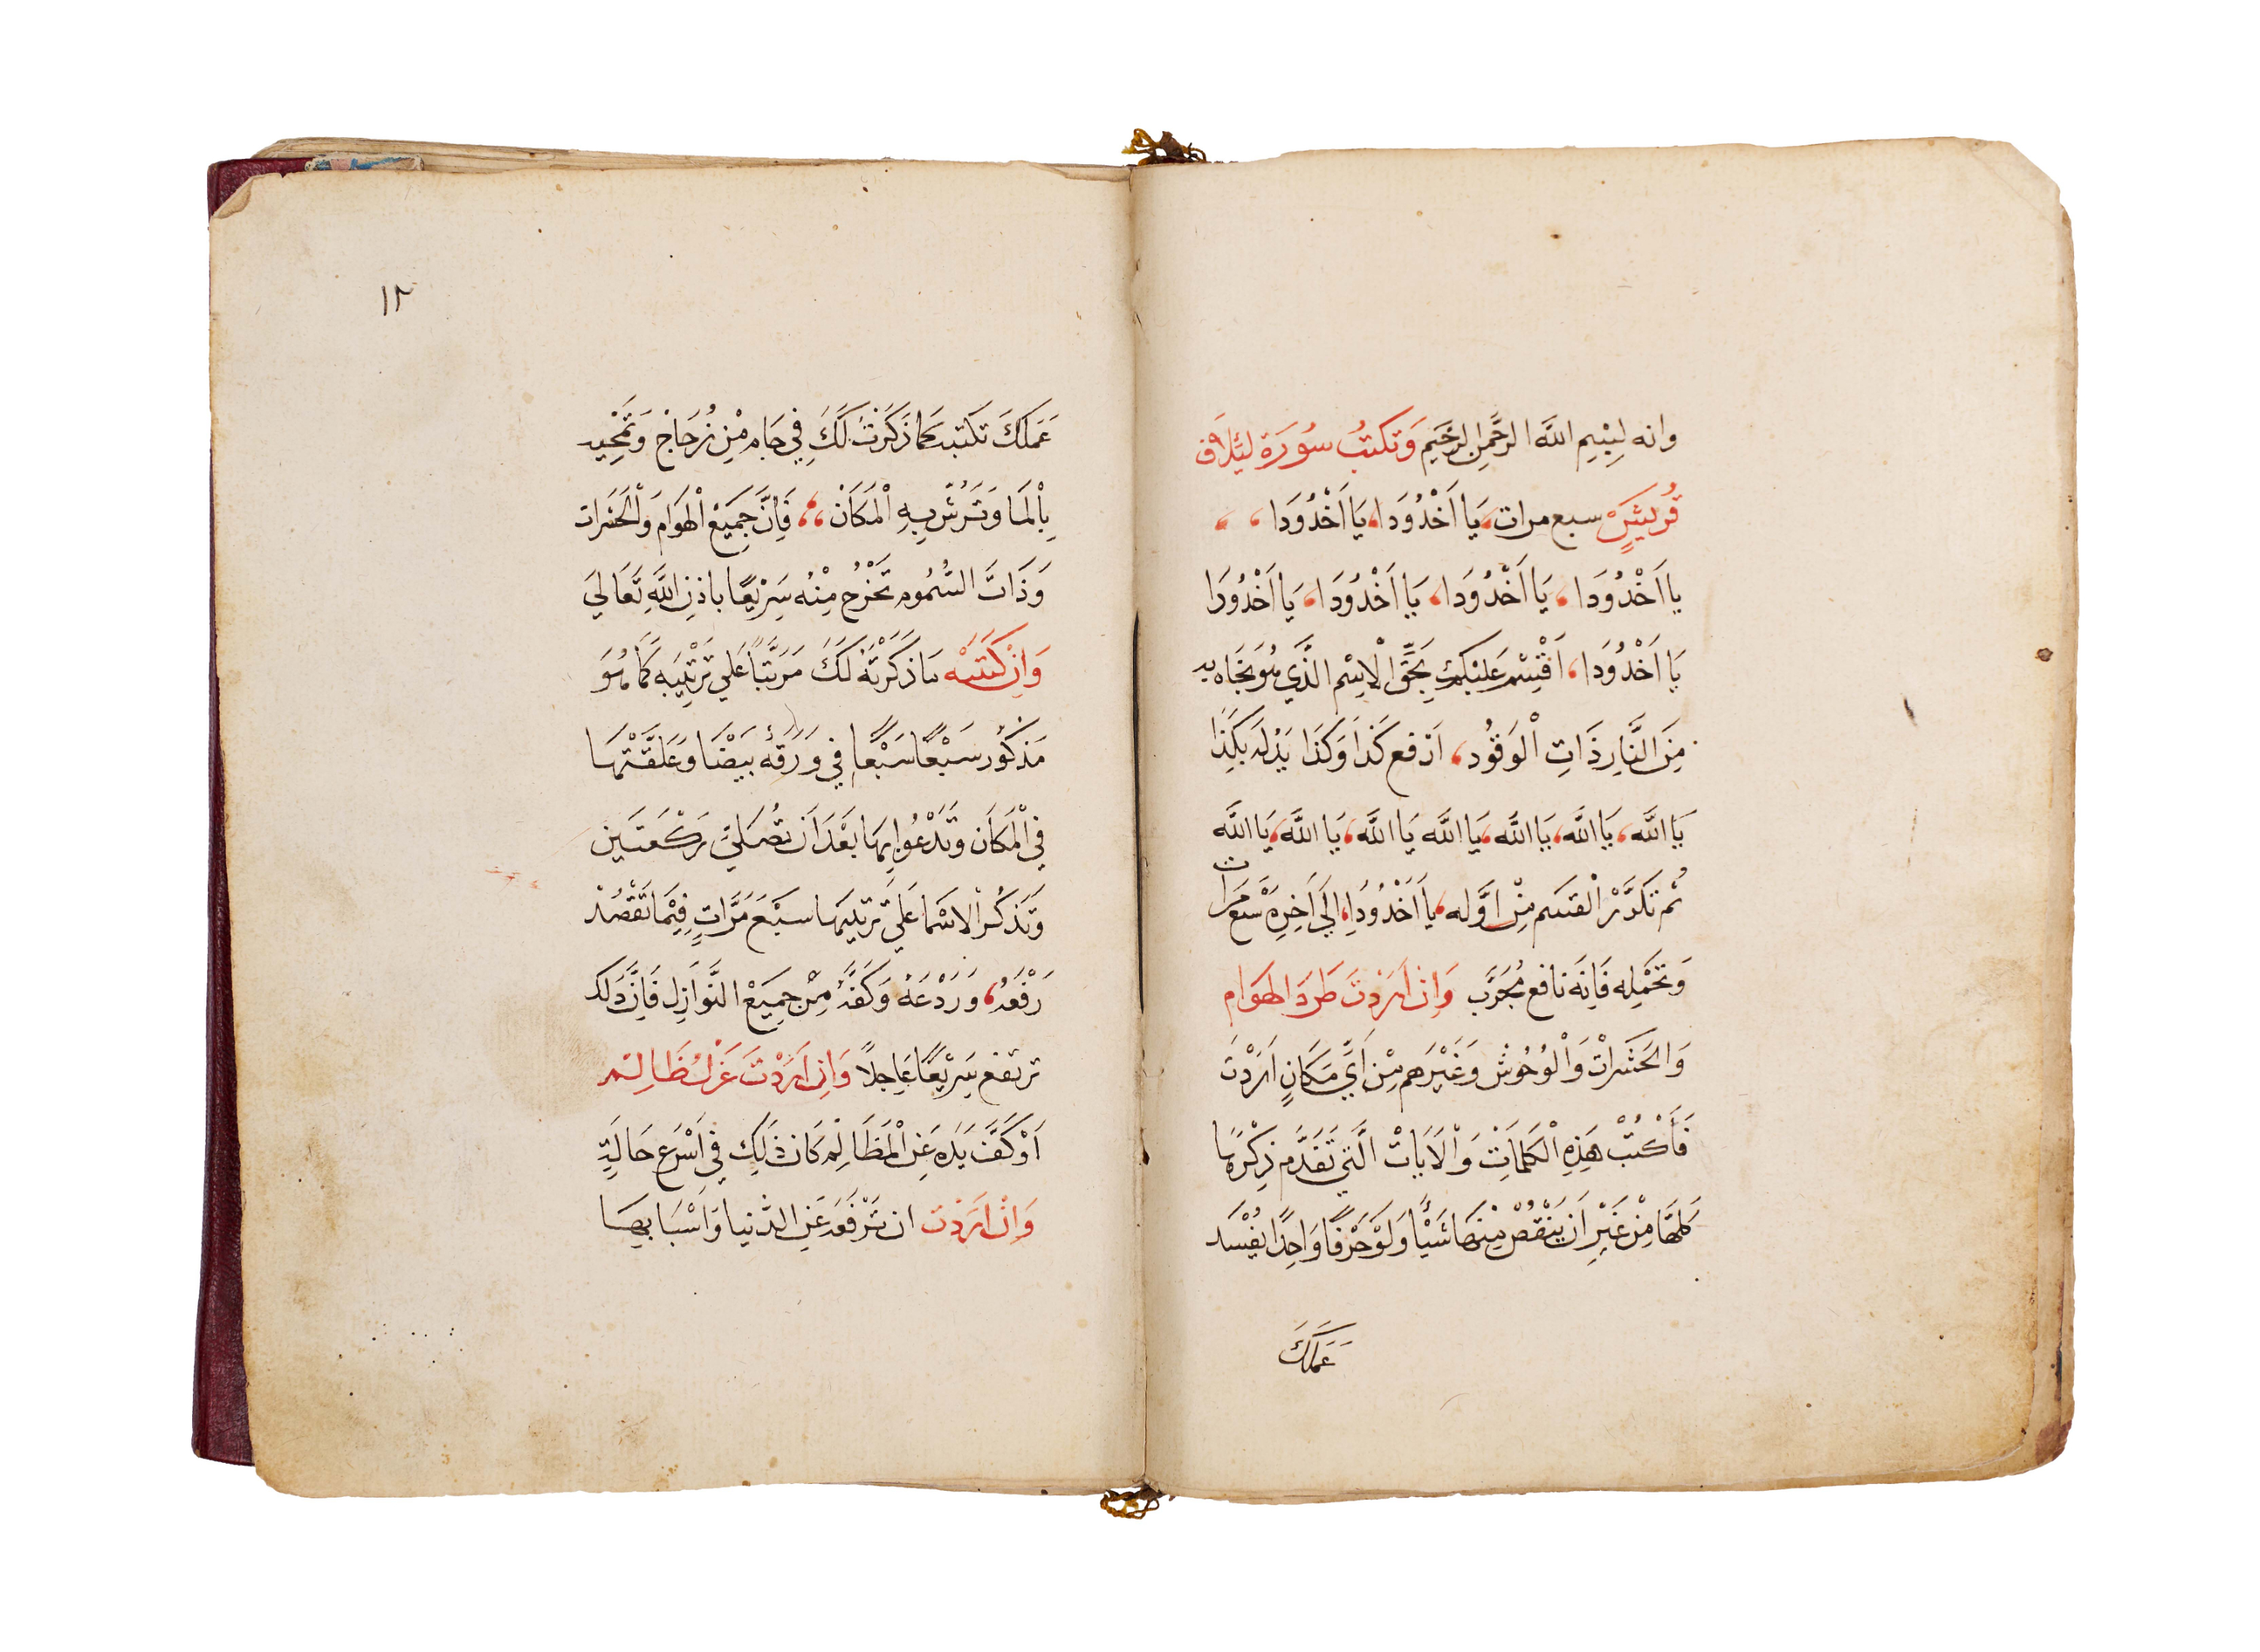 وانه لِبِسْمِ اللَّهِ الرَّحْمَنِ الرَّحِيمِ وَتكتبُ سُورَة لِئِلَافِ
قُرَيْشٍ سبع مرات، يَا اَخْدُوُدَا، يَا اَخْدُوُدَا، ،
يا اَخْدُوُدَا، يَا اَخْدُوُدَا، يَا اَخْدُوُدَا، يَا اَخْدُوُدَا
يَا اَخْدُوُدَا، اَقْسِمُ عَلَيْكَ بِحَقِّ الْاِسْمِ الَّذِي هُوَ
مِنَ النَّارِ ذَاتِ الْوَقُود، اَدفع كَذَا وَكَذَا بِكَذَا
يَا اللَّه، يَا اللَّه، يَا اللَّه، يَا اللَّه يَا اللَّه، يَا اللَّه، يَا اللَّه
ثُم تكَرَّرْ الْقسَم مِنْ اوَّله، يَا اَخْدُوُدَا، اِلَى اَخِرِه سَبْع مَرَات
وَتَحْمِله فَاِنَه نافع مُجَرَّب وَاِن اَرَدتَ طَردَ الهَوَام
وَالحَشَرَاتْ وَالْوُحُوش وَغَيْرَهم مِنْ اَيِّ مَكَانٍ اَرَدْتَ
فَأَكْتُبْ هَذِهِ الْكَلِمَاتِ وَالْاَيَاتْ الَّتِي تَقَدَّم ذِكْرُهَا
كلهَا مِنْ غَيْرِ اَن يَنْقُصْ مِنْهَا شَيْأً وَلَوْ حَرْفًا وَاحِدًا يُفْسَد
عَمَلَكَ
١٢
عَمَلَكَ تكتبه كمَا ذَكَرْتُ لَكَ فِي جَام مِنْ زُجَاج وَتَمْحِيه
بِالْمَا وَتَرُشّ بِهِ الْمَكَانْ، فَاِنَّ جَمِيعْ الْهَوَام وَالْحَشَرات
وَذَاتَ السُّمُوم تَخْرُج مِنْهُ سَرِيْعًا باذنِ اللَّهِ تَعَالَى
وَاِنْ كَتَبْتَه مَا ذَكَرْتَهُ لَكَ مَرَتَّبًا عَلَى تَرْتِيْبِه كَمَا هُوَ
مَذكُور سَبْعًا سَبْعًا فِي وَرَقَة بَيْضَا وَعَلَّقْتَهَا
فِي الْمَكَان وَتَدْعُوا بِهَا بَعْدَ اَن تُصَلِّي رَكْعَتَين
وَتَذكُر الاسْمَا عَلَى تَرتيبهَا سَبْعَ مَرَّاتٍ فِيْمَا تَقْصُدْ
رَفْعَهُ، وَرَدْعَهُ وَكَفَّهُ مِنْ جَمِيعْ النَّوَازِل فَاِنَّ ذَلك
ترتفع سَرِيْعًا عَاجِلاً وَاِن اَرَدْتَ عَزْلَ ظَالِم
اَوْ كَفَّ يَدَه عَنِ الْمَظَالِمْ كَانَ ذَلِكَ فِي اَسْرَع حَالَةٍ
وَاِنْ اَرَدْتَ ان تَرْفَعَ عَنِ الدُّنيا وَاَسْبَابِهَا